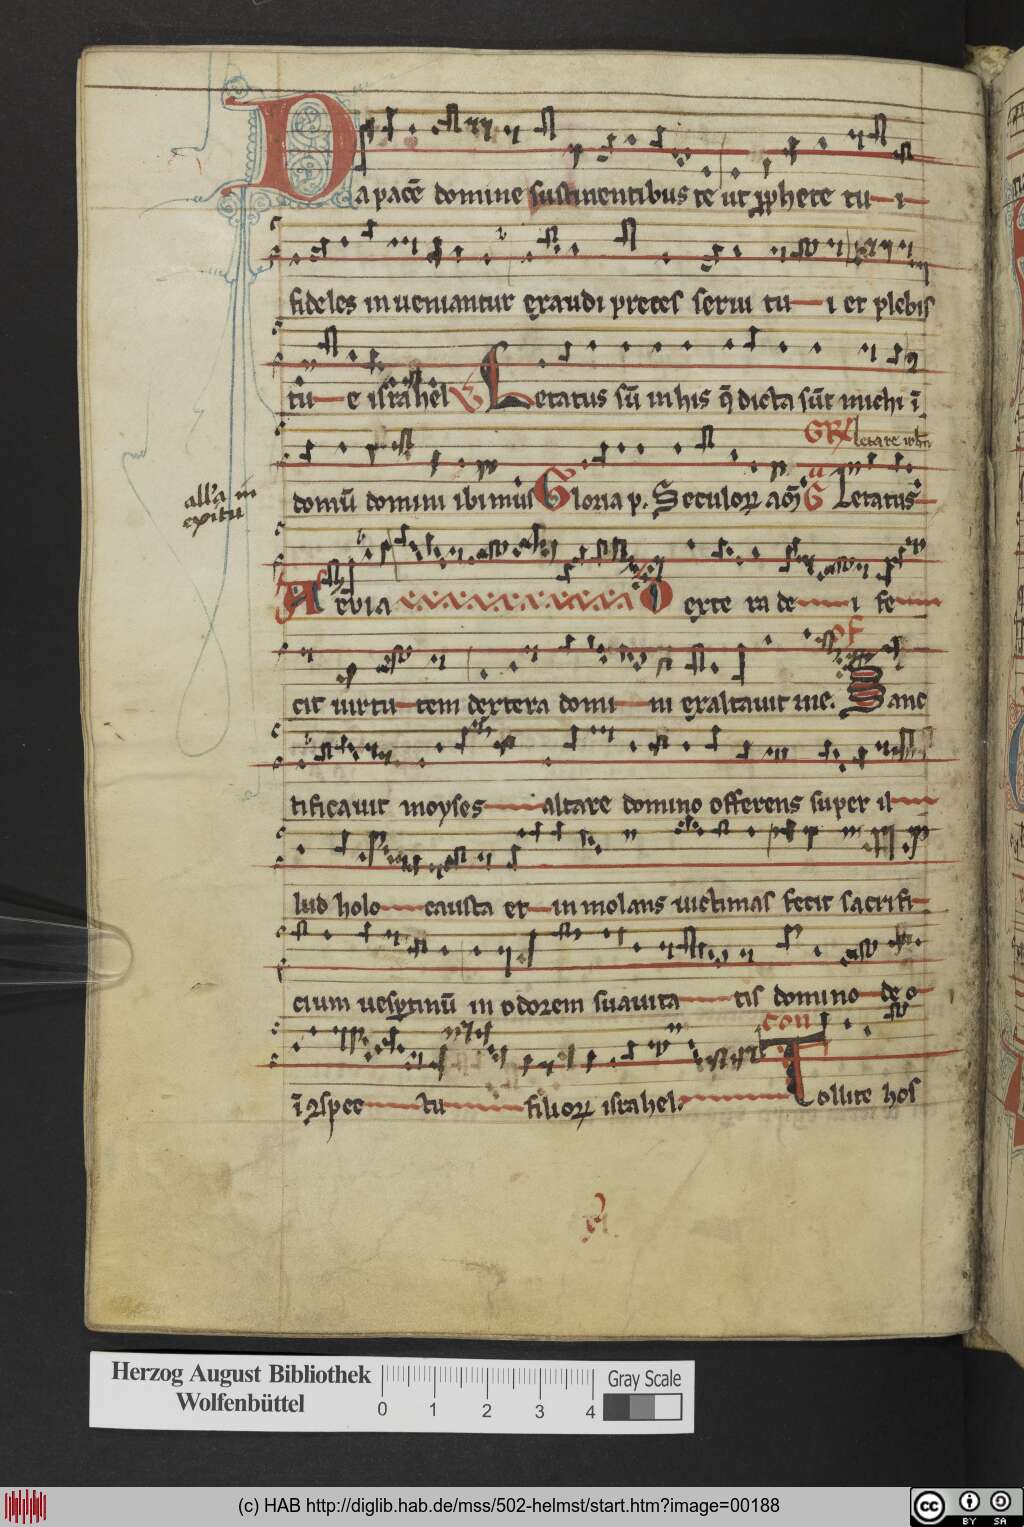 Da pacē domine sustinentibus te ut ꝓphete tu i
fideles inveniantur exaudi preces servi tu i et plebis
tu e israhel V Letatus sū in his q̄ dicta sūt michi ī
GR letare irl̄m
domū domini ibimus Gloria p. Seculoꝝ am̄ G Letatus
all'a in
exitu
Aevia Dextera de i fe
cit virtu tem dextera domi ni exaltavit me. OF Sanc
tificavit moyses altare domino offerens super il
lud holo causta et inmolans victimas fecit sacrifi
cium vesꝑtinū in odorem suavita tis domino deo
con
ī ꝯspec tu filioꝝ israhel. Tollite hos
Herzog August Bibliothek
Wolfenbüttel
0 1 2 3 4
Gray Scale
(c) HAB http://diglib.hab.de/mss/502-helmst/start.htm?image=00188
cc BY SA